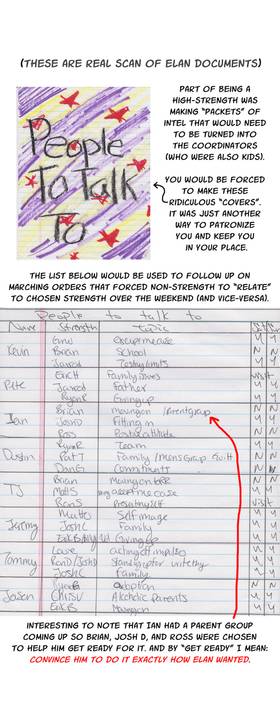 (THESE ARE REAL SCAN OF ELAN DOCUMENTS)
PART OF BEING A
HIGH-STRENGTH WAS
MAKING "PACKETS" OF
INTEL THAT WOULD NEED
TO BE TURNED INTO
THE COORDINATORS
(WHO WERE ALSO KIDS).
People
To Talk
To
YOU WOULD BE FORCED
TO MAKE THESE
RIDICULOUS "COVERS".
IT WAS JUST ANOTHER
WAY TO PATRONIZE
YOU AND KEEP YOU
IN YOUR PLACE.
THE LIST BELOW WOULD BE USED TO FOLLOW UP ON
MARCHING ORDERS THAT FORCED NON-STRENGTH TO "RELATE"
TO CHOSEN STRENGTH OVER THE WEEKEND (AND VICE-VERSA).
People to talk to
Name Strength Topic
Kevin Brian School N N
Jared
Eric H Family
Pete Jared Father Y Y
Ryan R Giving up Y Y
Brian Moving on / Parent group N N
Ian Josh D Fitting in Y Y
Ross attitude
Ryan R Team Y Y
Dustin Pat T Family / Mens Group Guilt N N
Dan G Commitment
Brian Moving on N N
TJ Matt S
Ryan S
Matt Self image Y Y
Jeremy Josh C Family Y Y
Giving up
acting off impulses Y Y
Tommy
Josh C Family Y Y
adoption N N
Jason Chrisy Alcoholic Parents Y Y
Erik B Moving on Y Y
INTERESTING TO NOTE THAT IAN HAD A PARENT GROUP
COMING UP SO BRIAN, JOSH D, AND ROSS WERE CHOSEN
TO HELP HIM GET READY FOR IT. AND BY "GET READY" I MEAN:
CONVINCE HIM TO DO IT EXACTLY HOW ELAN WANTED.